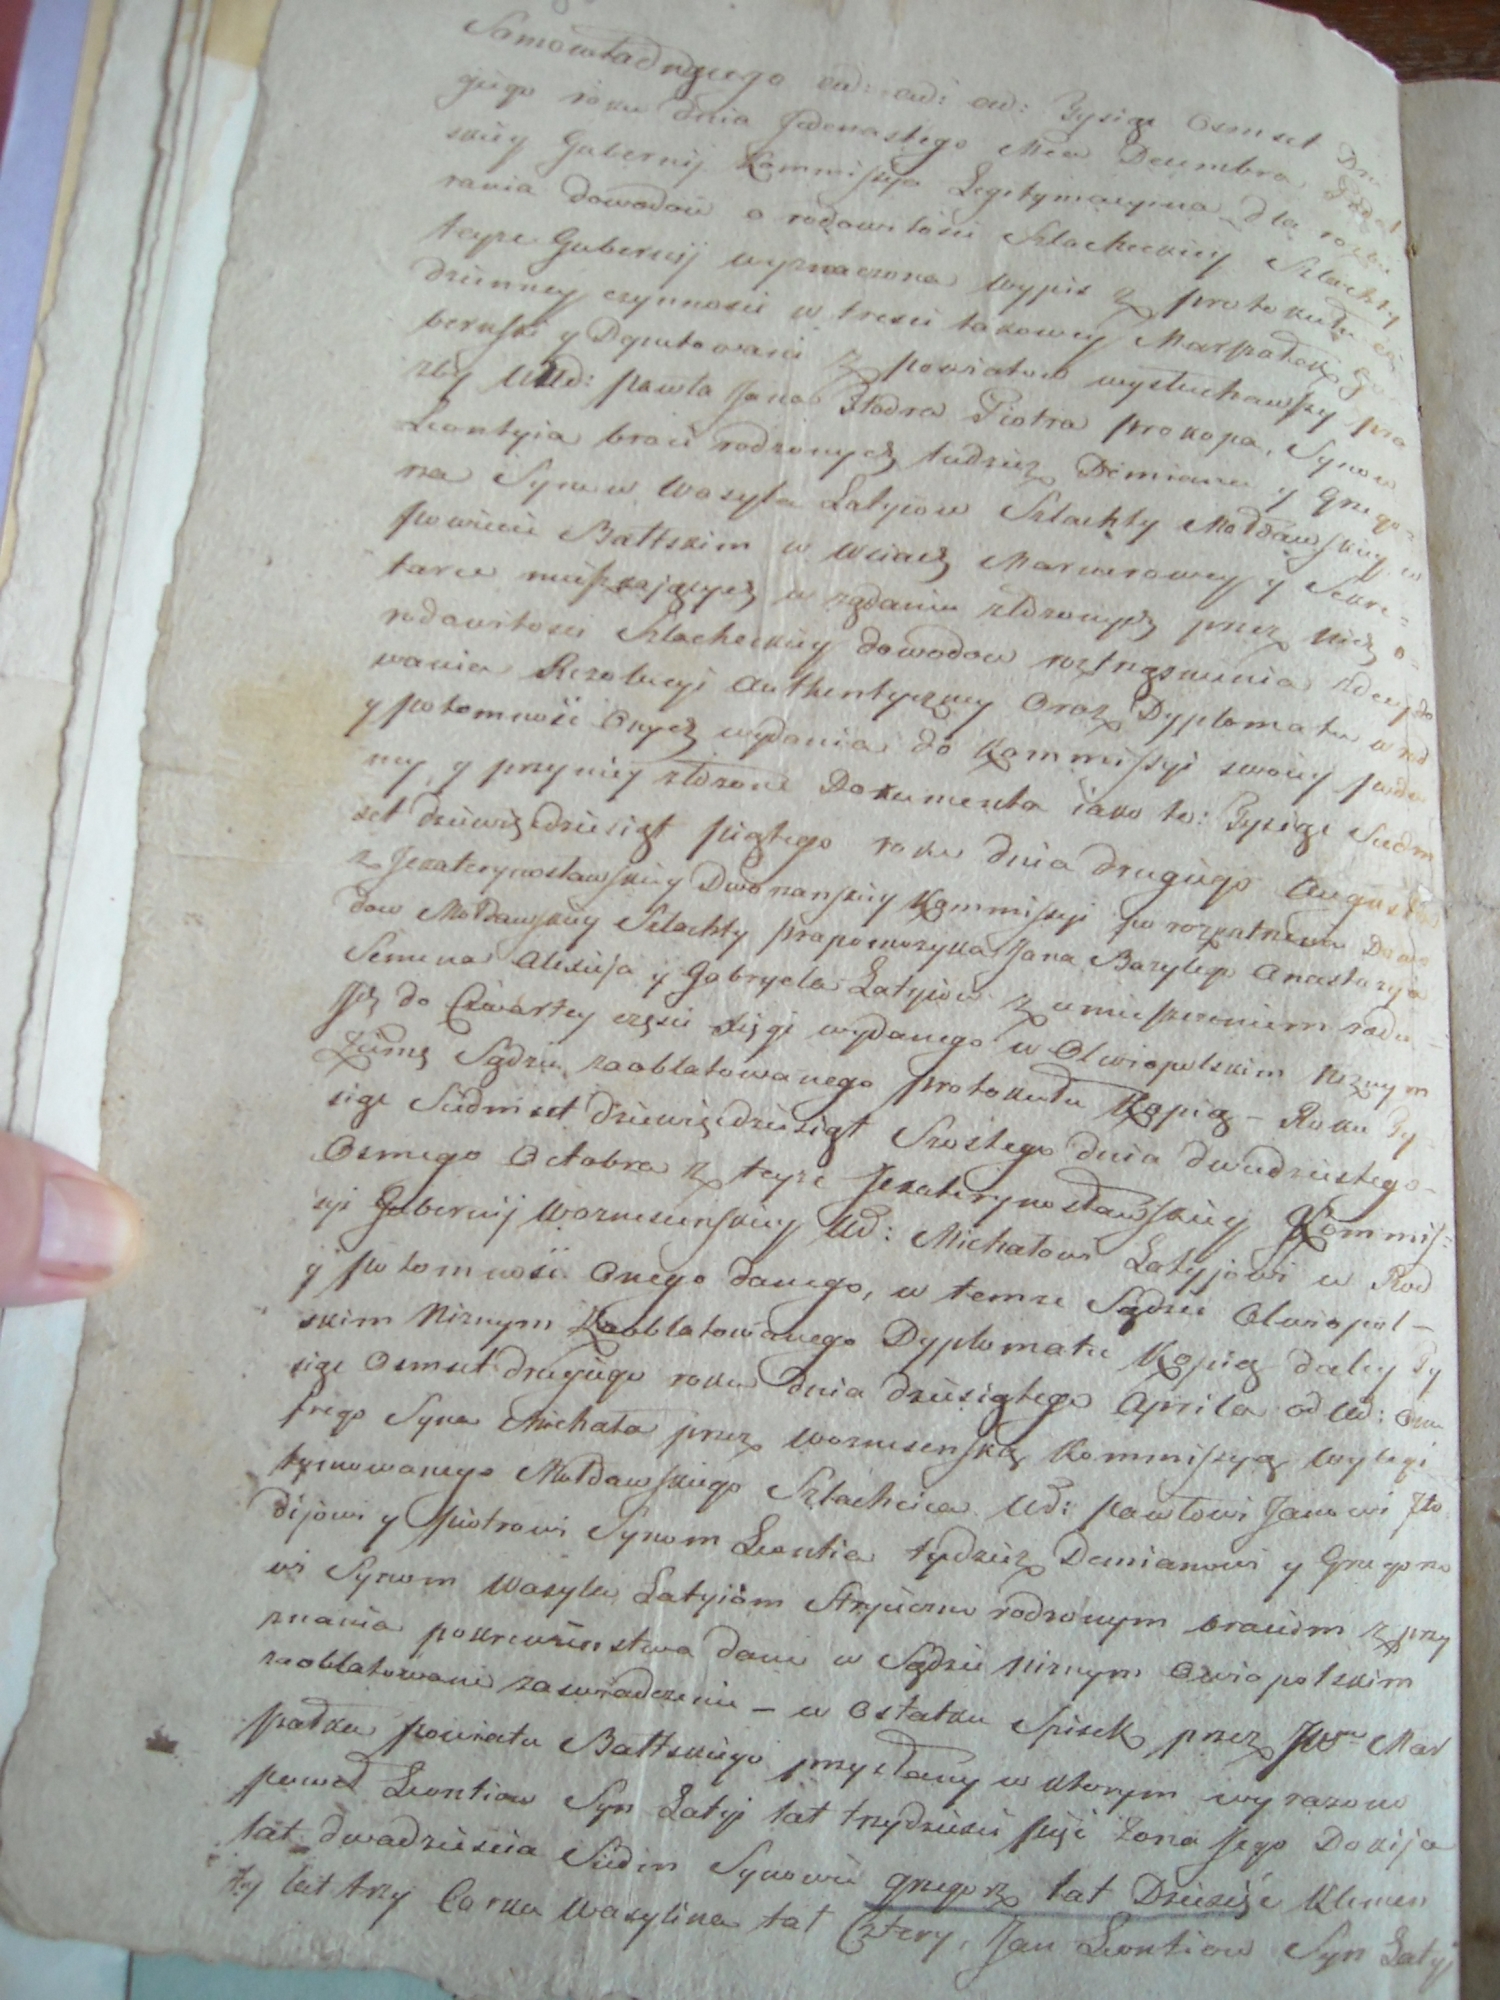 Samowładnącego etd: etd: etd: Tysiąc Osmset Dru
giego roku dnia Jedenastego Mca Decembra, Podol
skiey Gubernij Kommissya Legitymacyina dla rozbi
rania dowodow o rodowitości Szlacheckiey Szlachty
teyże Gubernij wyznaczona wypis z protokułu co
dzienney czynności w treści takowey Marszałek Gu
bernski y Deputowani z powiatow wysłuchawszy pro
zby UUd: Pawła Jana Piotra Prokopa, Synow
Leontyia braci rodzonych tudzież Demiana y Grego-
rza Synow Wasyla Łatyiow Szlachty Mołdawskiey w
powiecie Bałtskim w wsiach y Sekre-
tarce mieszkaiących w żądaniu złożonych przez nich o
rodowitości Szlacheckiey dowodow roztrząsnienia zdecydo
wania Rezolucyi authentyczney Oraz Dyplomatu w rod
y potomność Onych wydania do Kommissyi swoiey poda
ney, y przy niey złożone Dokumenta iako to: Tysiąc Siedm
set dziewiędziesiąt piątego roku dnia drugiego Augusta
z Jekaterynosławskiey Dworanskiey Kommissyi po rozpatrzeniu Dowo
dow Mołdawskiey Szlachty Jana Bazylego Anastazyia
Semena Alexieja y Gabryela Łatyiow z umieszczeniem rodu
Jch do Czwartey części xięgi wydanego w Olwiopolskim Niżnym
Ziemę Sądzie zaoblatowanego protokułu Kopią – Roku Ty-
siąc Siedmset dziewiędziesiąt Szostego dnia dwudziestego
Osmego Octobra z teyże Jekaterynosławskiey Kommis-
syi Gubernij Woznesenskiey Ud: Michałowi Łatyjowi w Rod
y potomność Onego danego, w temże Sądzie Olwiopol-
skim Niżnym Zaoblatowanego Dyplomatu Kopią daley Ty
siąc Osmset drugiego roku dnia dziesiątego Aprila od Ud: Onu
frego Syna Michała przez Woznesenską Kommissyą wylegi
tymowanego Mołdawskiego Szlachcica Ud: Pawłowi Janowi
y Piotrowi Synom Leontia tydzież Demianowi y Gregorzo
wi Synom Wasyla Łatyiom Stryieczno rodzonym braciom z przy
znania pokrewienstwa dane w Sądzie Niżnym Olwiopolskim
zaoblatowane zaswiadczenie – w Ostatku Spisek przez JWo Mar
szałka powiatu Bałtskiego przysłany w ktorym wyrażono
Paweł Leontiow Syn Łatyj lat trzydzieści pięć Żona Jego Dokija
lat dwadzieścia Siedm Synowie Gregorz lat Dziesięć Klemen
ty lat trzy Corka Wasylina lat Cztery, Jan Leontiow Syn Łatyj